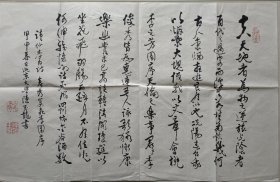 夫天地者萬物之逆旅光陰者
百代之過客也而浮生若夢為歡幾何
古人秉燭夜遊良有以也況陽春召我
以煙景大塊假我以文章會桃
李之芳園序天倫之樂事群季
俊秀皆為惠連吾人詠歌獨慚康
樂幽賞未已高談轉清開瓊筵以
坐花飛羽觴而醉月不有佳作
何伸雅懷如詩不成罰依金谷酒數
春夜宴桃李園序
甲申春日 書